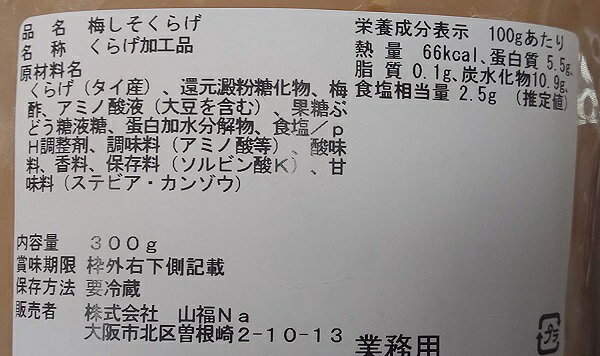 品 名 梅しそくらげ
名 称 くらげ加工品
原材料名
くらげ(タイ産)、還元澱粉糖化物、梅
酢、アミノ酸液(大豆を含む)、果糖ぶ
どう糖液糖、蛋白加水分解物、食塩/p
H調整剤、調味料(アミノ酸等)、酸味
料、香料、保存料(ソルビン酸K)、甘
味料(ステビア・カンゾウ)
内容量 300g
賞味期限 枠外右下側記載
保存方法 要冷蔵
販売者 株式会社 山福Na
大阪市北区曽根崎2-10-13
栄養成分表示 100gあたり
熱 量 66kcal、蛋白質 5.5g、
脂 質 0.1g、炭水化物10.9g、
食塩相当量 2.5g (推定値)
業務用
プラ